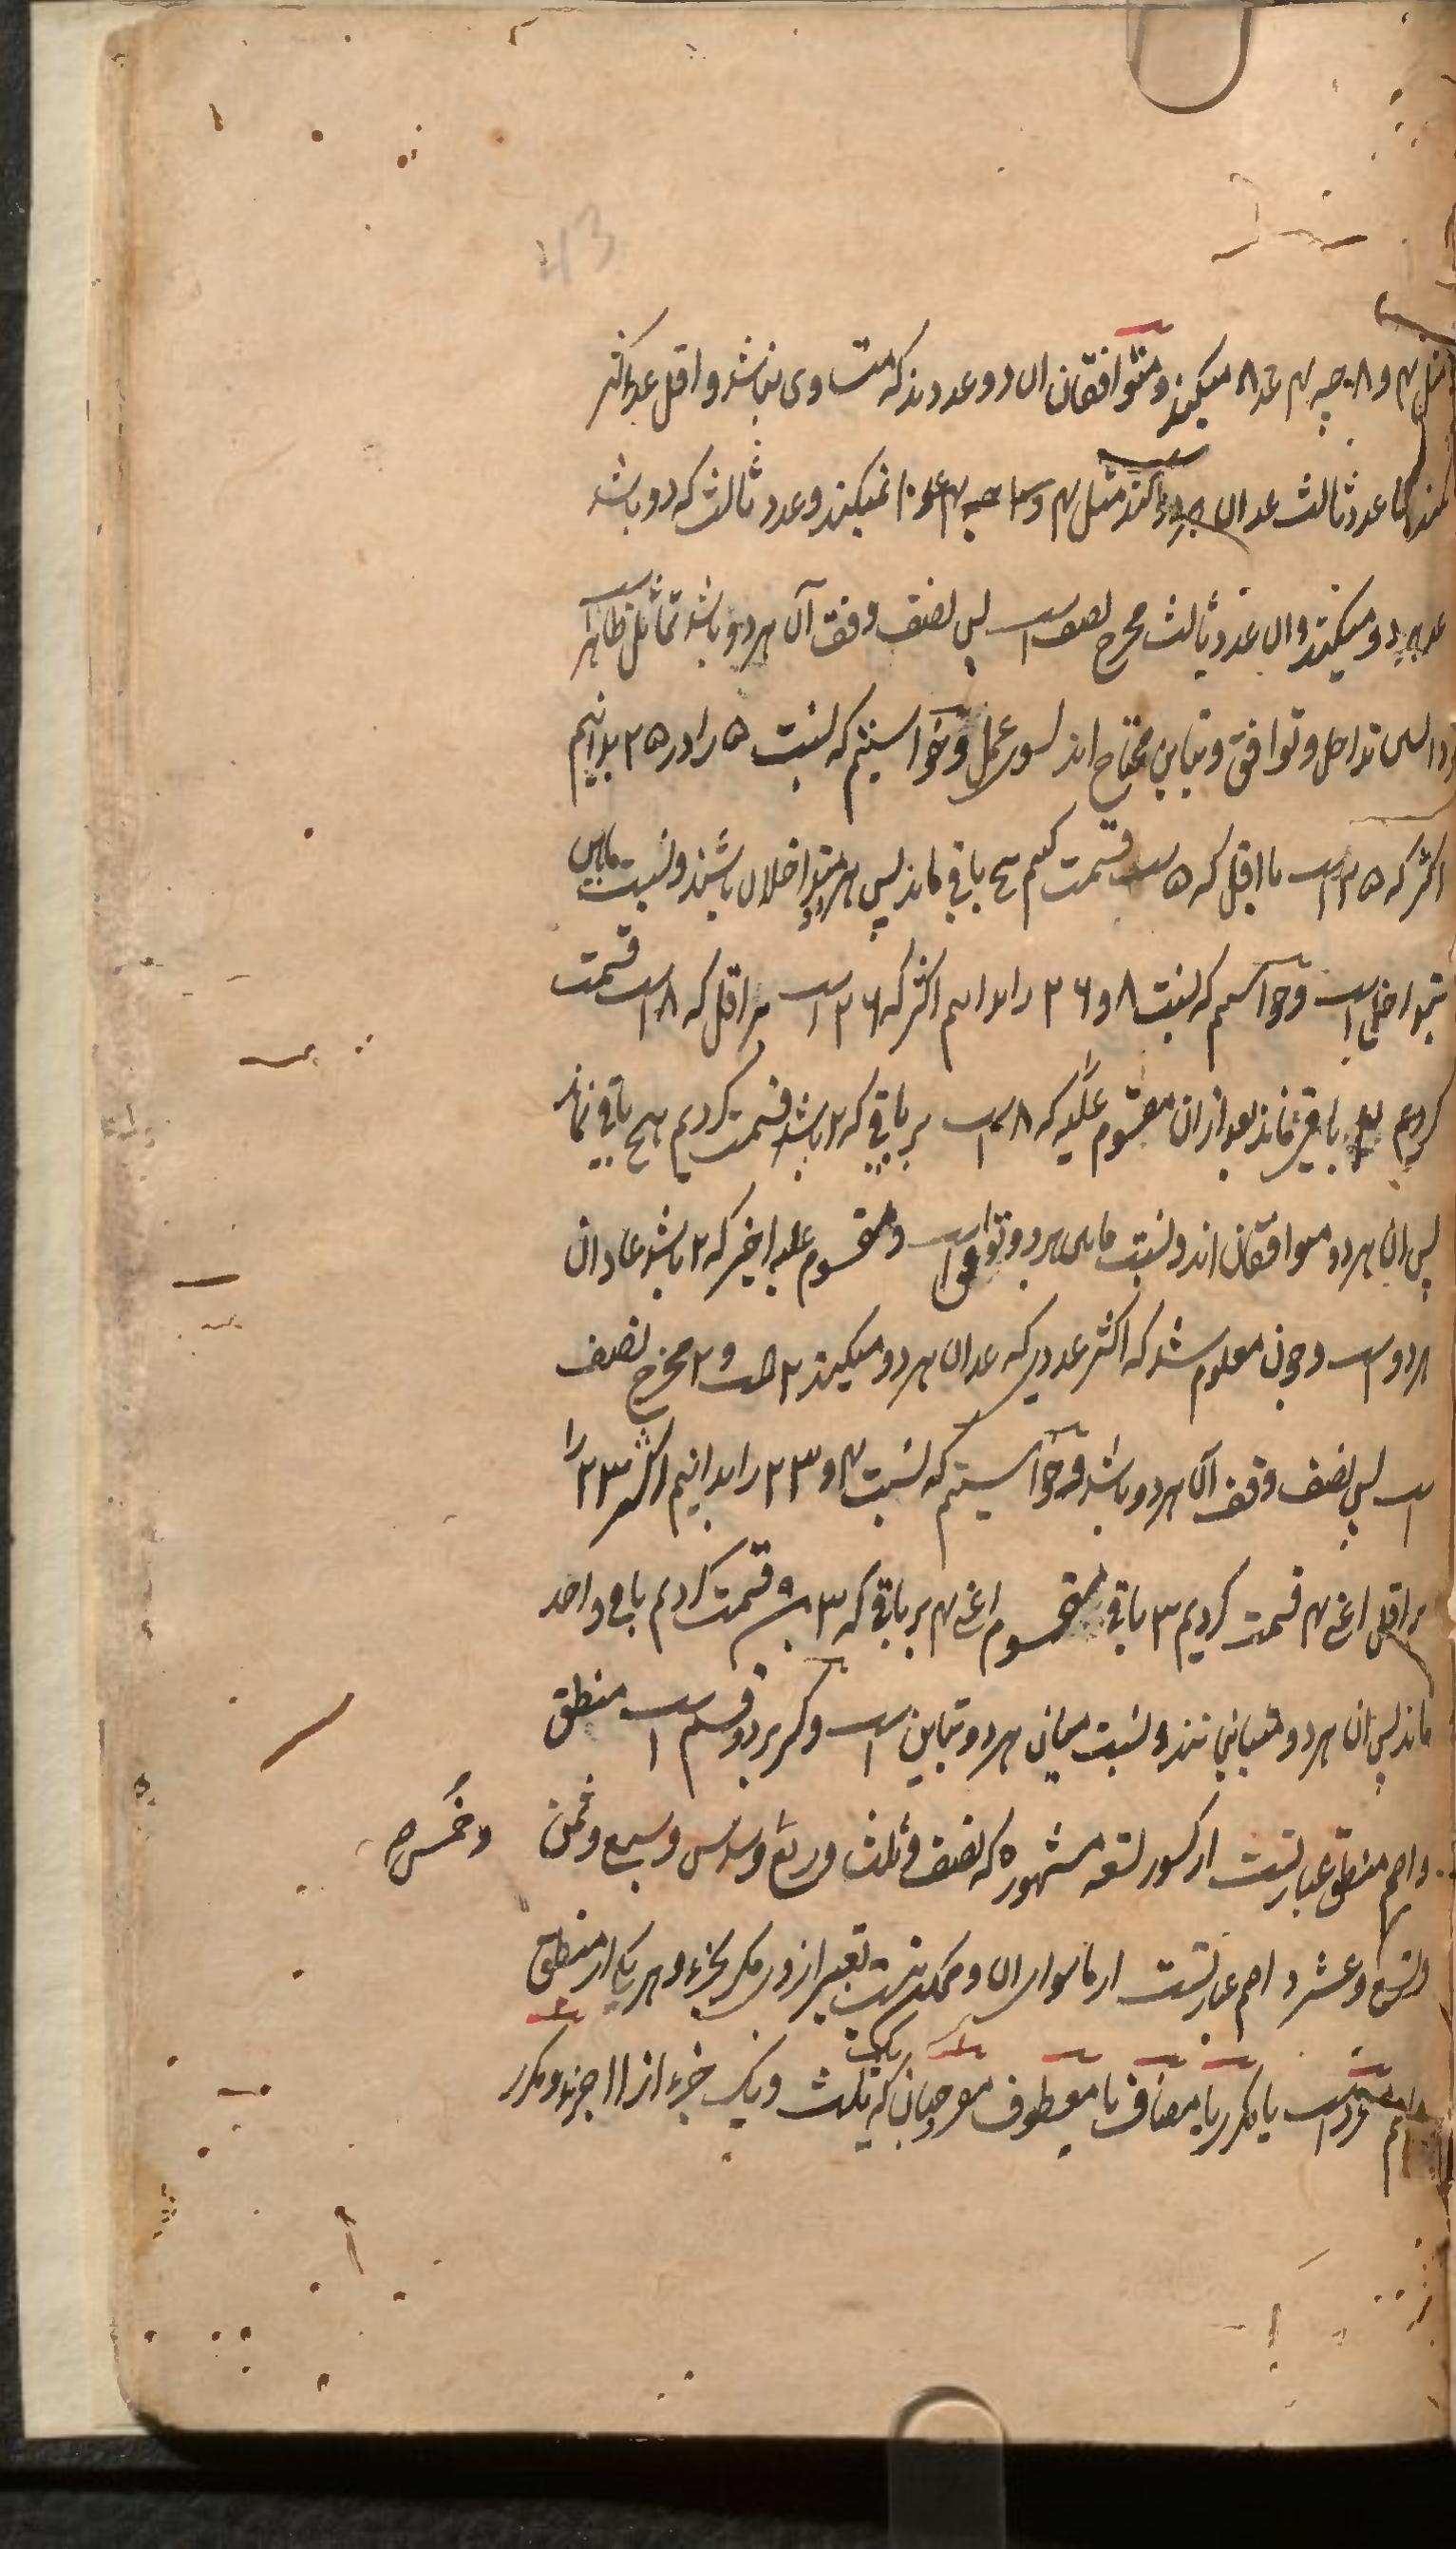 43
مثل ۴ و ۸ چه ۴ عد ۸ میکند و متوافقان ان دو عددند که متساوی نباشد و اقل عد اکثر
نکند اما عدد ثالث عد ان هر دو کند مثل ۴ و ۱۰ چه ۴ عد ۱۰ نمیکند و عدد ثالث که دو باشد
عد هر دو میکند و ان عدد ثالث مخرج نصف است پس نصف وفق آن هر دو باشد تماثل ظاهر است
تداخل و توافق و تباین محتاج اند بسوی عمل و خواستیم که نسبت ۵ را در ۲۵ بدانیم
اکثر که ۲۵ است با اقل که ۵ است قسمت کنیم هیچ باقی نماند پس هر دو متداخلان باشند و نسبت مابین
بتداخل است و خواستیم که نسبت ۸ و ۲۶ را بدانیم اکثر که ۲۶ است بر اقل که ۸ است قسمت
کردیم ۲ باقی ماند بعد ازان مقسوم علیه که ۸ است بر باقی که ۲ باشد قسمت کردیم هیچ باقی نماند
پس ان هر دو متوافقان اند و نسبت مابین هر دو توافق است و مقسوم علیه اخیر که ۲ باشد عاد ان
هر دو است و چون معلوم شد که اکثر عددی که عد ان هر دو میکند ۲ است و ۲ مخرج نصف
است پس نصف وفق آن هر دو باشد و خواستیم که نسبت ۴ و ۲۳ را بدانیم اکثر ۲۳ را
بر اقل اعنی ۴ قسمت کردیم ۳ باقی مقسوم اعنی ۴ بر باقی که ۳ قسمت کردیم باقی واحد
ماند پس ان هر دو متباین نند و نسبت میان هر دو تباین است و کسر بر دو قسم است منطق
و اصم منطق عبارتست از کسور تسعه مشهوره که نصف و ثلث و ربع و سدس و سبع و ثمن و خمس
و تسع و عشر و اصم عبارتست از ماسوای ان و ممکن نیست تعبیر ازوی مگر بجزء و هر یک از منطق
و اصم مفرد است یا مکرر یا مضاف یا معطوف مفرد چنان که یک ثلث و یک جزء از ۱۱ جزء و مکرر